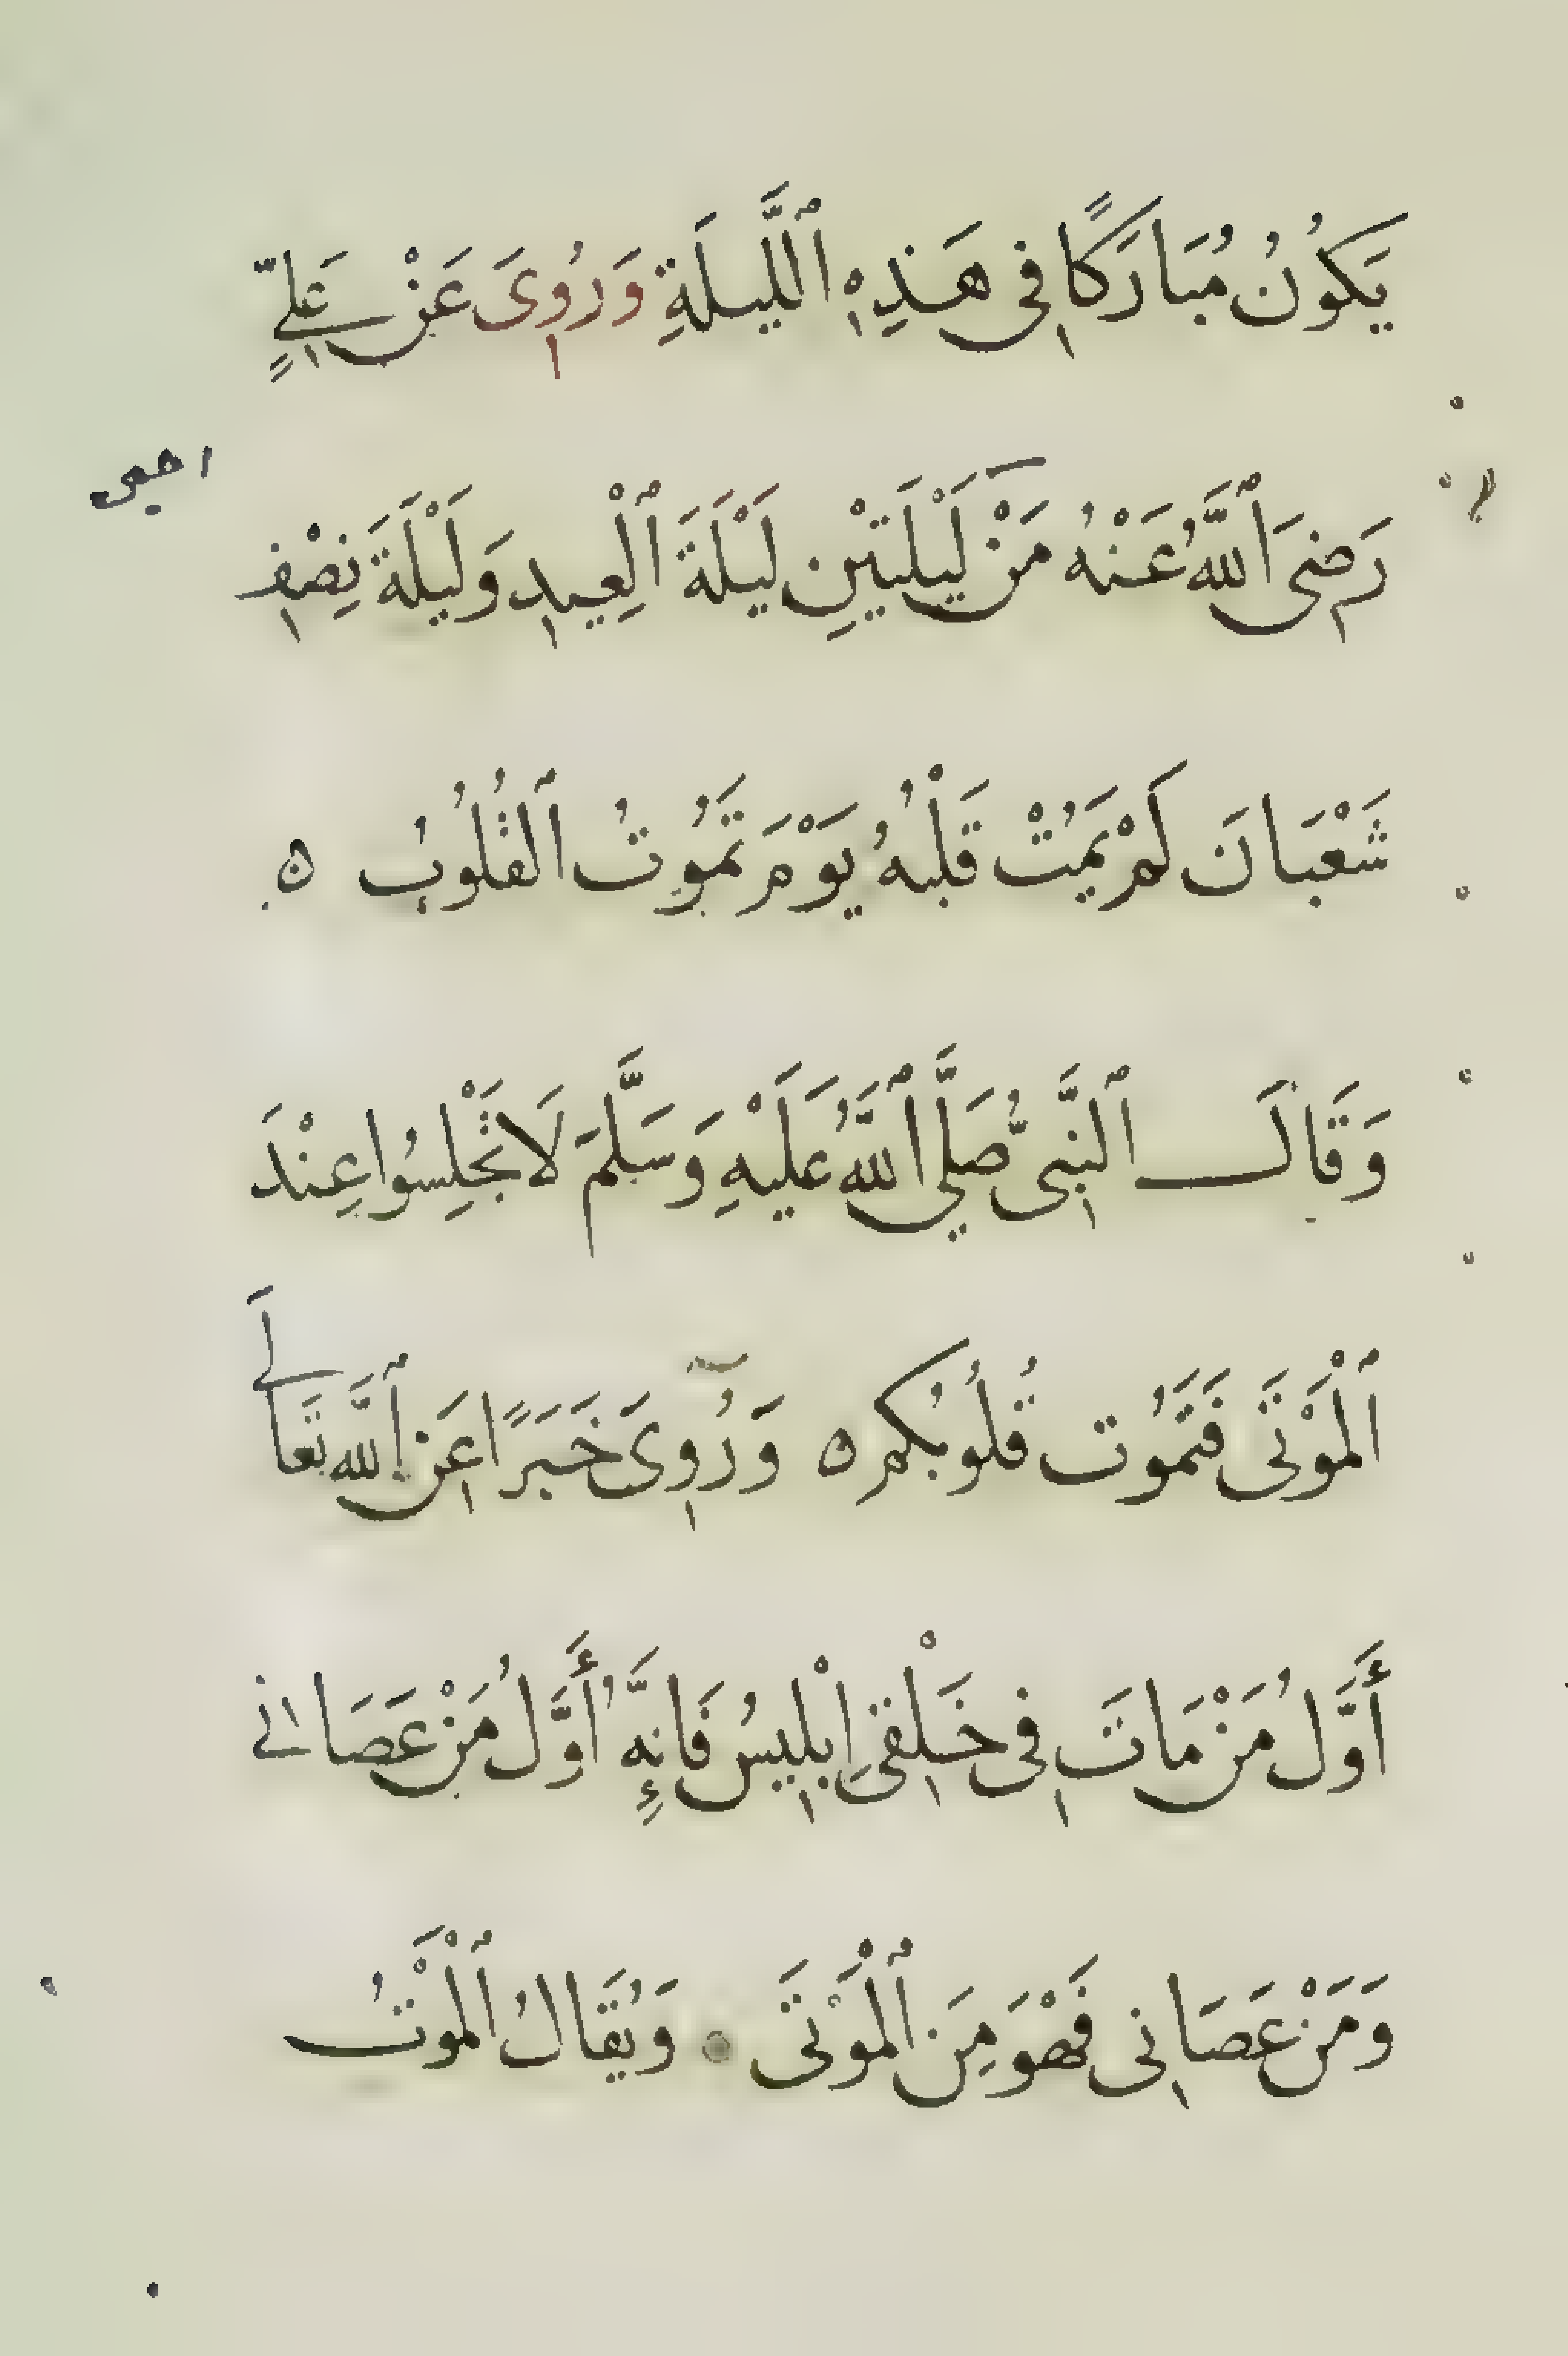 يَكُونُ مُبَارَكًا فِى هَذِهِ ٱللَّيلَةِ وَرُوِىَ عَنْ عَلِيٍّ
احيى
رَضِىَ ٱللَّهُ عَنْهُ مَنْ لَيْلَتَيْنِ لَيْلَةَ ٱلْعِيدِ وَلَيْلَةَ نِصْفِ
شَعْبَانَ لَمْ يَمُتْ قَلْبُهُ يَوْمَ تَمُوتُ ٱلقُلُوبُ ه
وَقَالَ ٱلنَّبِىُّ صَلَّي ٱللَّهُ عَلَيْهِ وَسَلَّمَ لَا تَجْلِسُوا عِنْدَ
ٱلْمَوْتَى فَتَمُوت قُلُوبُكُم ه وَرُوِىَ خَبَرًا عَنِ ٱللَّه تَعَالَى
أَوَّلُ مَنْ مَاتَ فِى خَلْقِى إِبْلِيسُ فَإِنَّهُ أَوَّلُ مَنْ عَصَانِي
وَمَنْ عَصَانِى فَهْوَ مِنَ ٱلْمَوْتَى وَيُقَالُ ٱلْمَوْتُ